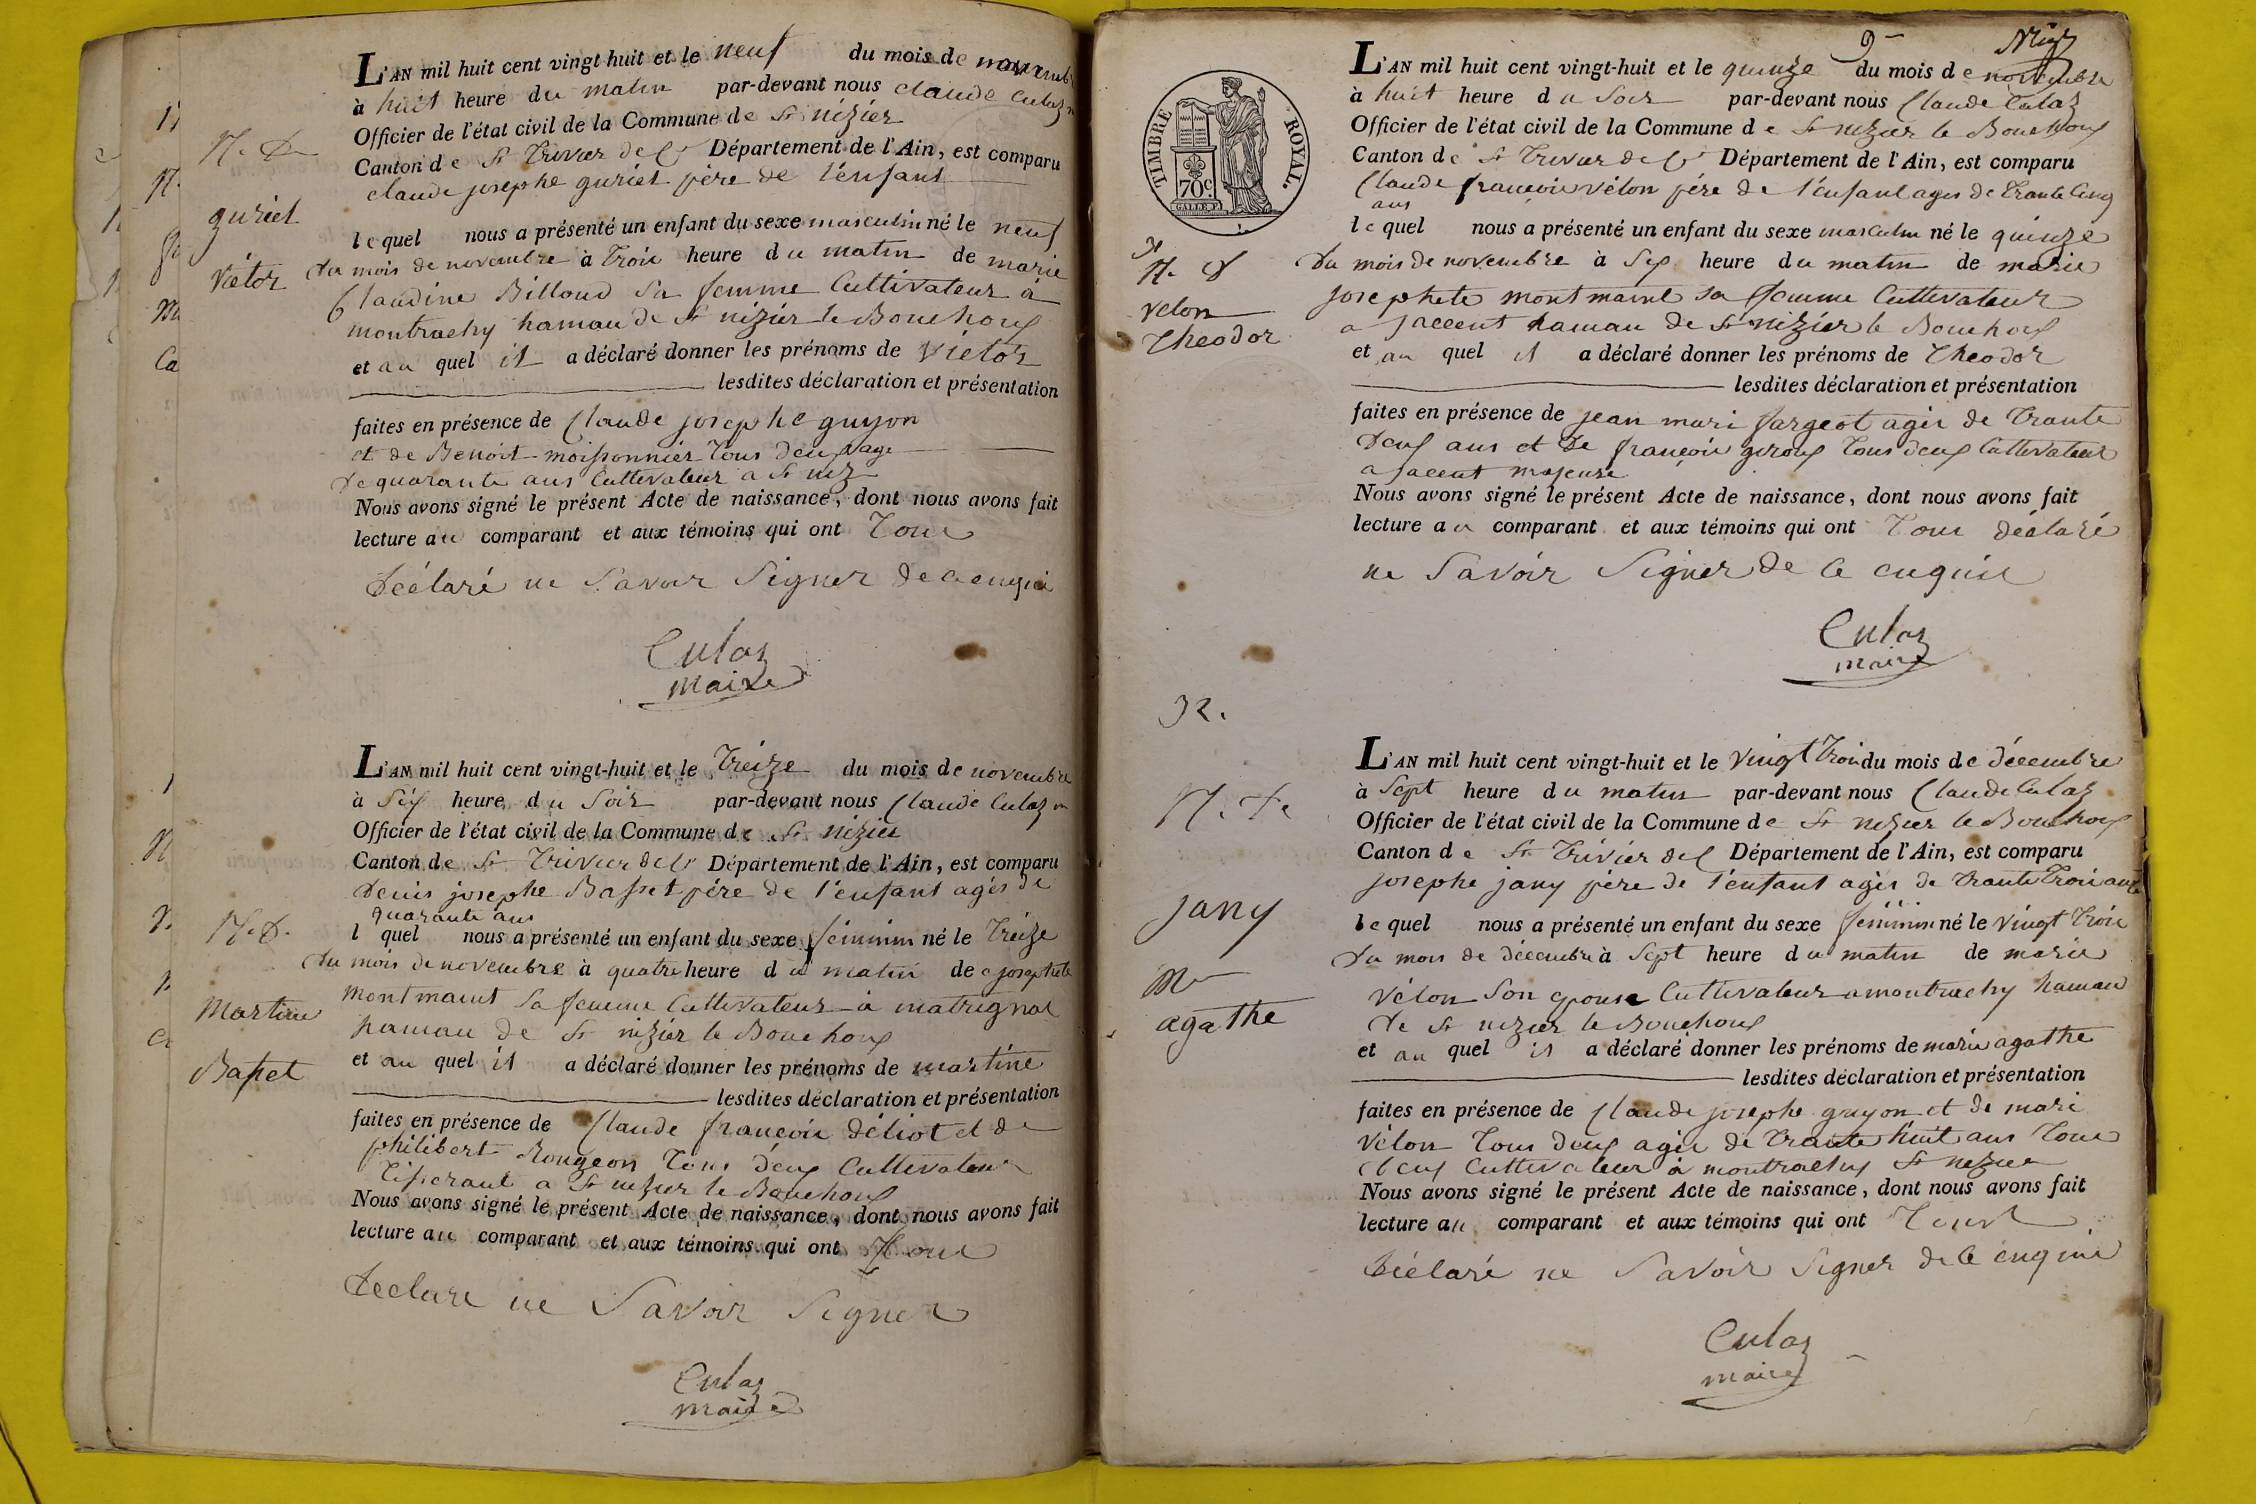 N. D
guriet
Victor
L'AN mil huit cent vingt huit et le neuf du mois de novembre
à huit heure du matin par-devant nous claude Culaz
Officier de l'état civil de la Commune de St nizier
Canton de St Trivier de Cr Département de l'Ain, est comparu
claude josephe guriet père de l'enfant
lequel nous a présenté un enfant du sexe masculin né le neuf
du mois de novembre à Trois heure du matin de marie
Claudine Billoud Sa femme Cultivateur à
montrachy hamau de St nizier le Bouchoux
et au quel il a déclaré donner les prénoms de Victor
lesdites déclaration et présentation
faites en présence de Claude josephe guyon
et de Benoit moissonnier Tous deux age
de quarante ans Cultivateur a St niz
Nous avons signé le présent Acte de naissance, dont nous avons fait
lecture au comparant et aux témoins qui ont Tous
déclaré ne Savoir Signer de ce enquis
Culaz
maire
N. D.
Martine
Basset
L'AN mil huit cent vingt-huit et le Treize du mois de novembre
à Six heure du Soir par-devant nous Claude Culaz
Officier de l'état civil de la Commune de St nizier
Canton de St Trivier de Cr Département de l'Ain, est comparu
denis josephe Basset père de l'enfant agés de
quarante ans
l quel nous a présenté un enfant du sexe féminin né le Treize
du mois de novembre à quatre heure du matin de josephete
montmaint Sa femme Cultivateur à matrignat
hamau de St nizier le Bouchoux
et au quel il a déclaré donner les prénoms de martine
lesdites déclaration et présentation
faites en présence de Claude françois déliot et de
philibert Rougeon Tous deux Cultivateur
Tisserant a St nizier le Bouchoux
Nous avons signé le présent Acte de naissance, dont nous avons fait
lecture au comparant et aux témoins qui ont Tous
declare ne Savoir Signer
Culaz
maire
9
TIMBRE ROYAL.
70c
N. D
velon
Theodor
L'AN mil huit cent vingt-huit et le quinze du mois de novembre
à huit heure du Soir par-devant nous Claude Culaz
Officier de l'état civil de la Commune de St nizier le Bouchoux
Canton de St Trivier de Cr Département de l'Ain, est comparu
Claude françois vélon père de l'enfant agés de Trante Cinq
ans
lequel nous a présenté un enfant du sexe masculin né le quinze
du mois de novembre à Six heure du matin de marie
josephete montmaint sa femme Cultivateur
a jaccent hamau de St nizier le Bouchoux
et au quel il a déclaré donner les prénoms de Theodor
lesdites déclaration et présentation
faites en présence de jean mari fargeot agés de Trante
deux ans et de françois giroux Tous deux Cultivateur
a jacent majeure
Nous avons signé le présent Acte de naissance, dont nous avons fait
lecture au comparant et aux témoins qui ont Tous déclaré
ne Savoir Signer de ce enquis
Culaz
maire
32.
N. De
jany
me
agathe
L'AN mil huit cent vingt-huit et le vingt Trois du mois de décembre
à Sept heure du matin par-devant nous Claude Culaz
Officier de l'état civil de la Commune de St nizier le Bouchoux
Canton de St Trivier de C Département de l'Ain, est comparu
josephe jany père de l'enfant agés de Trante Trois ans
lequel nous a présenté un enfant du sexe féminin né le vingt Trois
du mois de décembre à Sept heure du matin de marie
vélon Son epouse Cultivateur a montrachy hamau
de St nizier le Bouchoux
et au quel il a déclaré donner les prénoms de marie agathe
lesdites déclaration et présentation
faites en présence de Claude josephe guyon et de mari
vélon Tous deux agés de Trante huit ans Tous
deux Cultivateur à montrachy St nizier
Nous avons signé le présent Acte de naissance, dont nous avons fait
lecture au comparant et aux témoins qui ont Tous
déclaré ne Savoir Signer de ce enquis
Culaz
maire